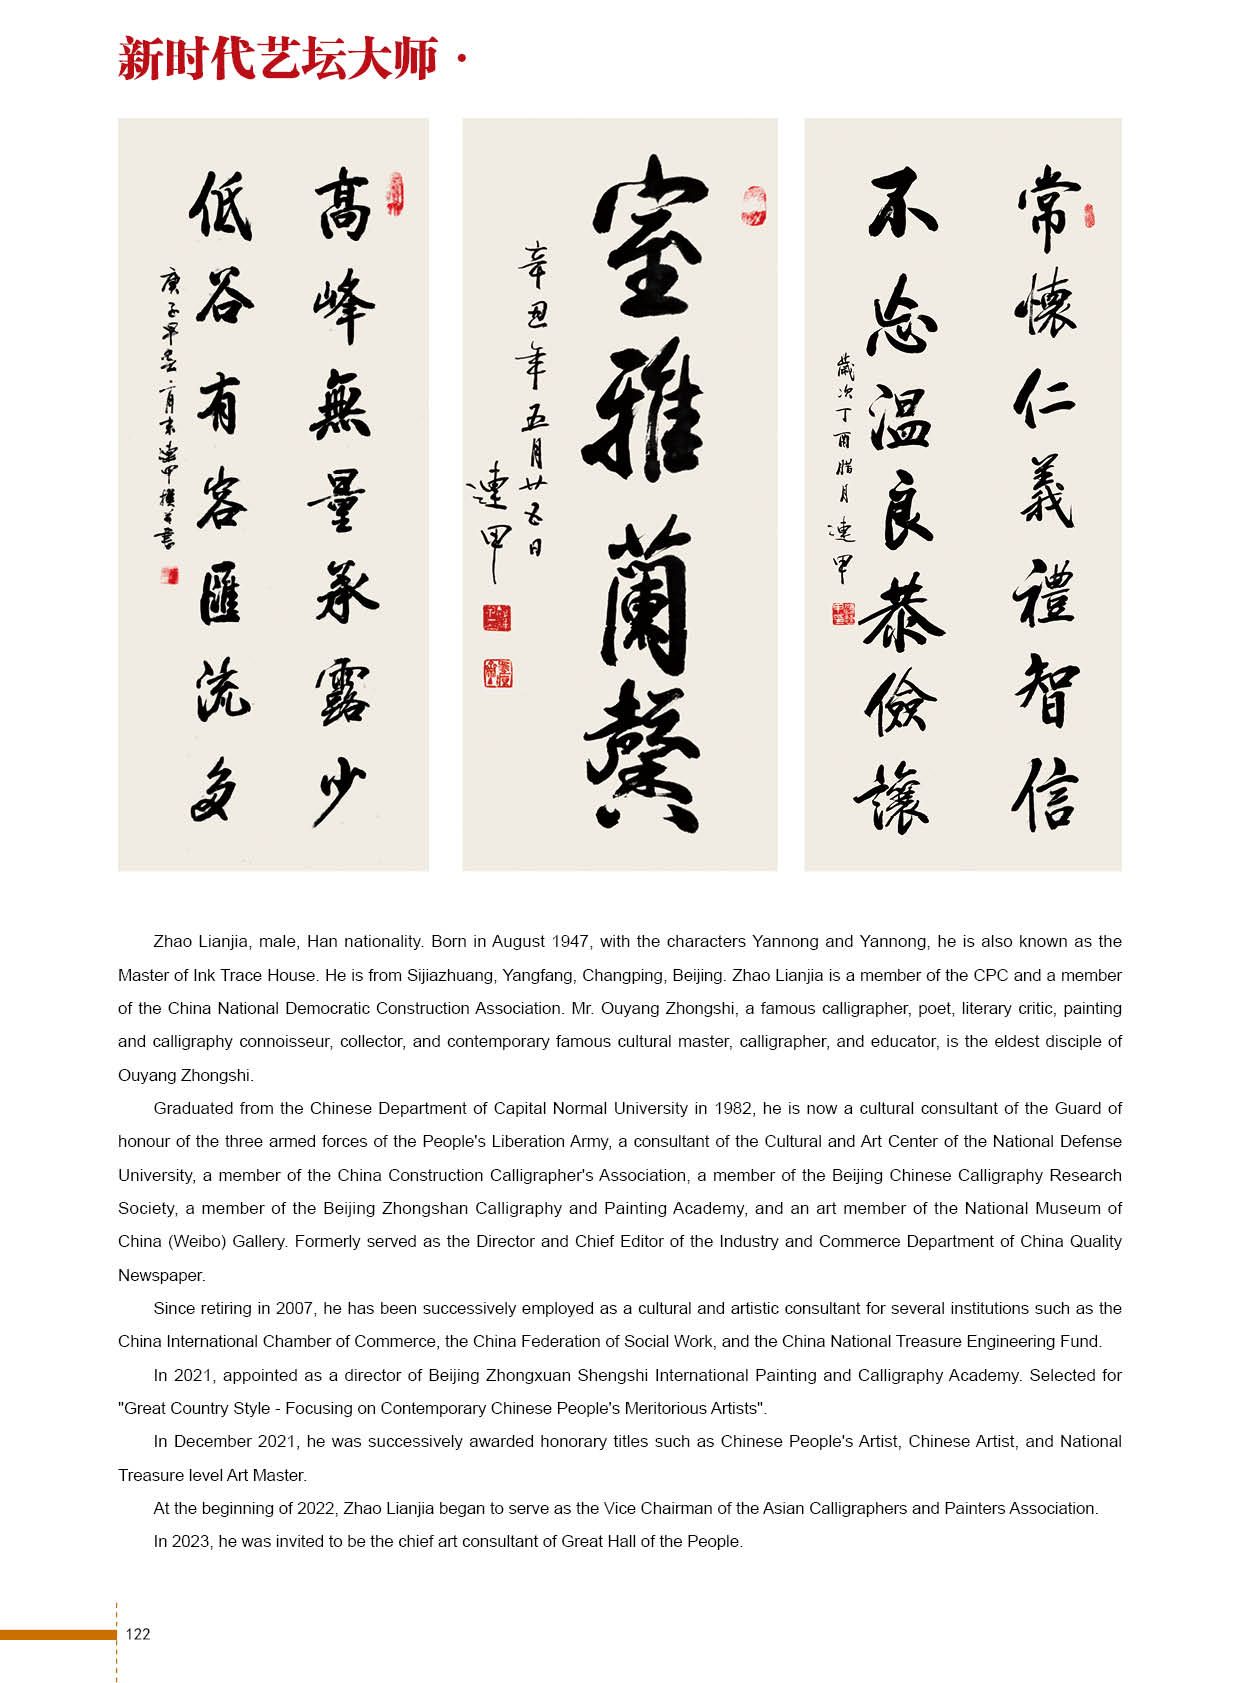 新时代艺坛大师·
高峰無量承露少
低谷有容匯流多
庚子早春
連甲撰并書
室雅蘭馨
辛丑年五月廿五日
連甲
常懷仁義禮智信
不忘温良恭儉讓
歲次丁酉腊月連甲
Zhao Lianjia, male, Han nationality. Born in August 1947, with the characters Yannong and Yannong, he is also known as the
Master of Ink Trace House. He is from Sijiazhuang, Yangfang, Changping, Beijing. Zhao Lianjia is a member of the CPC and a member
of the China National Democratic Construction Association. Mr. Ouyang Zhongshi, a famous calligrapher, poet, literary critic, painting
and calligraphy connoisseur, collector, and contemporary famous cultural master, calligrapher, and educator, is the eldest disciple of
Ouyang Zhongshi.
Graduated from the Chinese Department of Capital Normal University in 1982, he is now a cultural consultant of the Guard of
honour of the three armed forces of the People's Liberation Army, a consultant of the Cultural and Art Center of the National Defense
University, a member of the China Construction Calligrapher's Association, a member of the Beijing Chinese Calligraphy Research
Society, a member of the Beijing Zhongshan Calligraphy and Painting Academy, and an art member of the National Museum of
China (Weibo) Gallery. Formerly served as the Director and Chief Editor of the Industry and Commerce Department of China Quality
Newspaper.
Since retiring in 2007, he has been successively employed as a cultural and artistic consultant for several institutions such as the
China International Chamber of Commerce, the China Federation of Social Work, and the China National Treasure Engineering Fund.
In 2021, appointed as a director of Beijing Zhongxuan Shengshi International Painting and Calligraphy Academy. Selected for
"Great Country Style - Focusing on Contemporary Chinese People's Meritorious Artists".
In December 2021, he was successively awarded honorary titles such as Chinese People's Artist, Chinese Artist, and National
Treasure level Art Master.
At the beginning of 2022, Zhao Lianjia began to serve as the Vice Chairman of the Asian Calligraphers and Painters Association.
In 2023, he was invited to be the chief art consultant of Great Hall of the People.
122